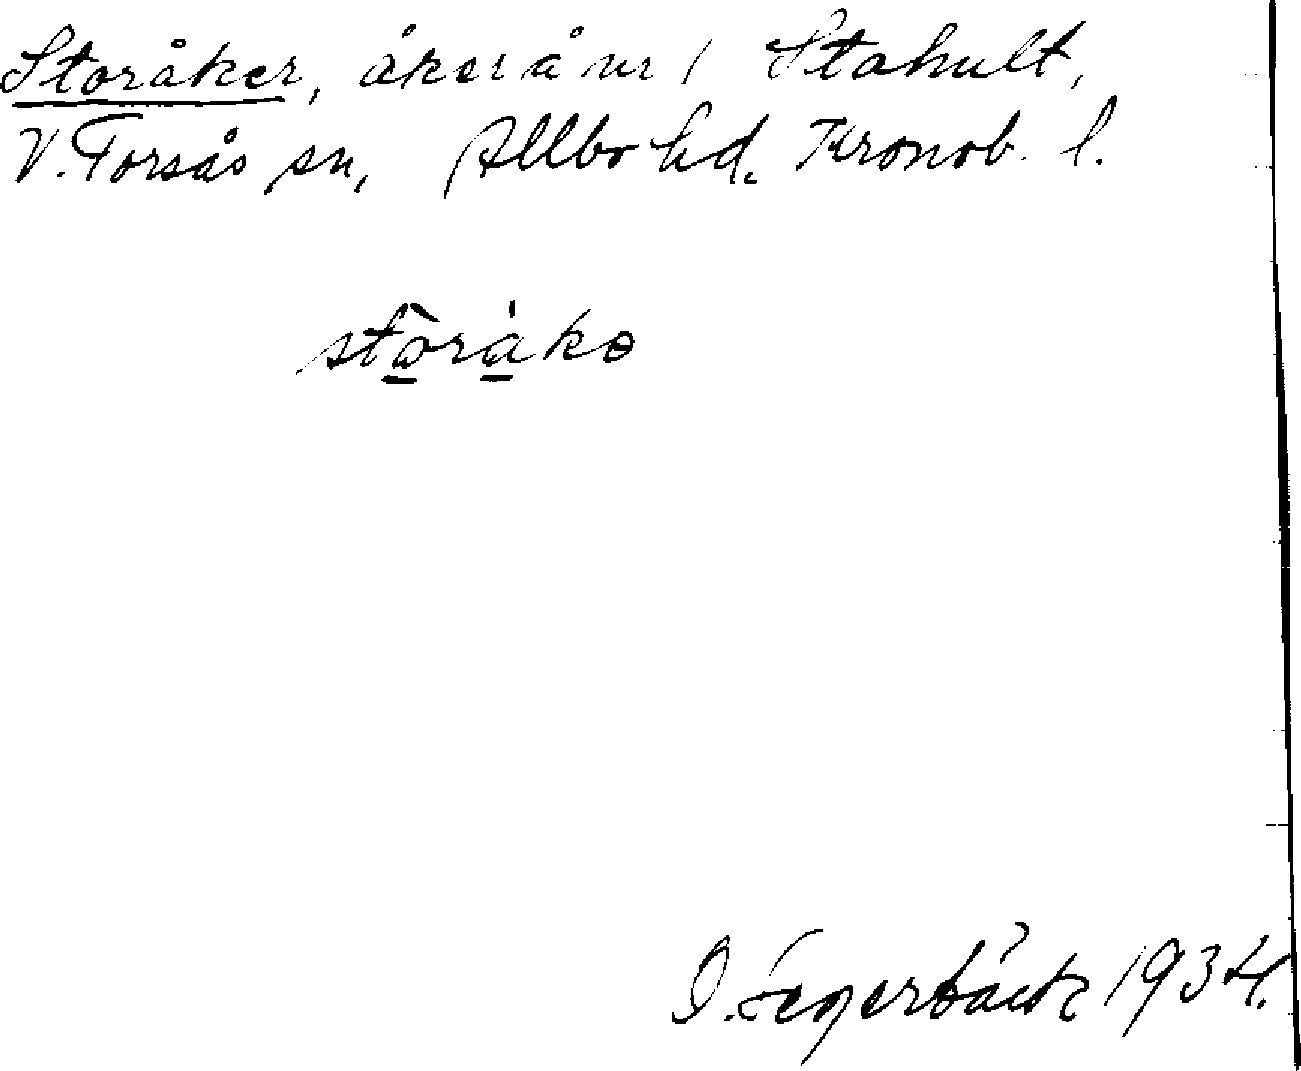 Storåker, åker å nr 1 Stahult,
V. Torsås sn, Allbo hd. Kronob. l.
stòråkə
I. Segerbäck 1934.